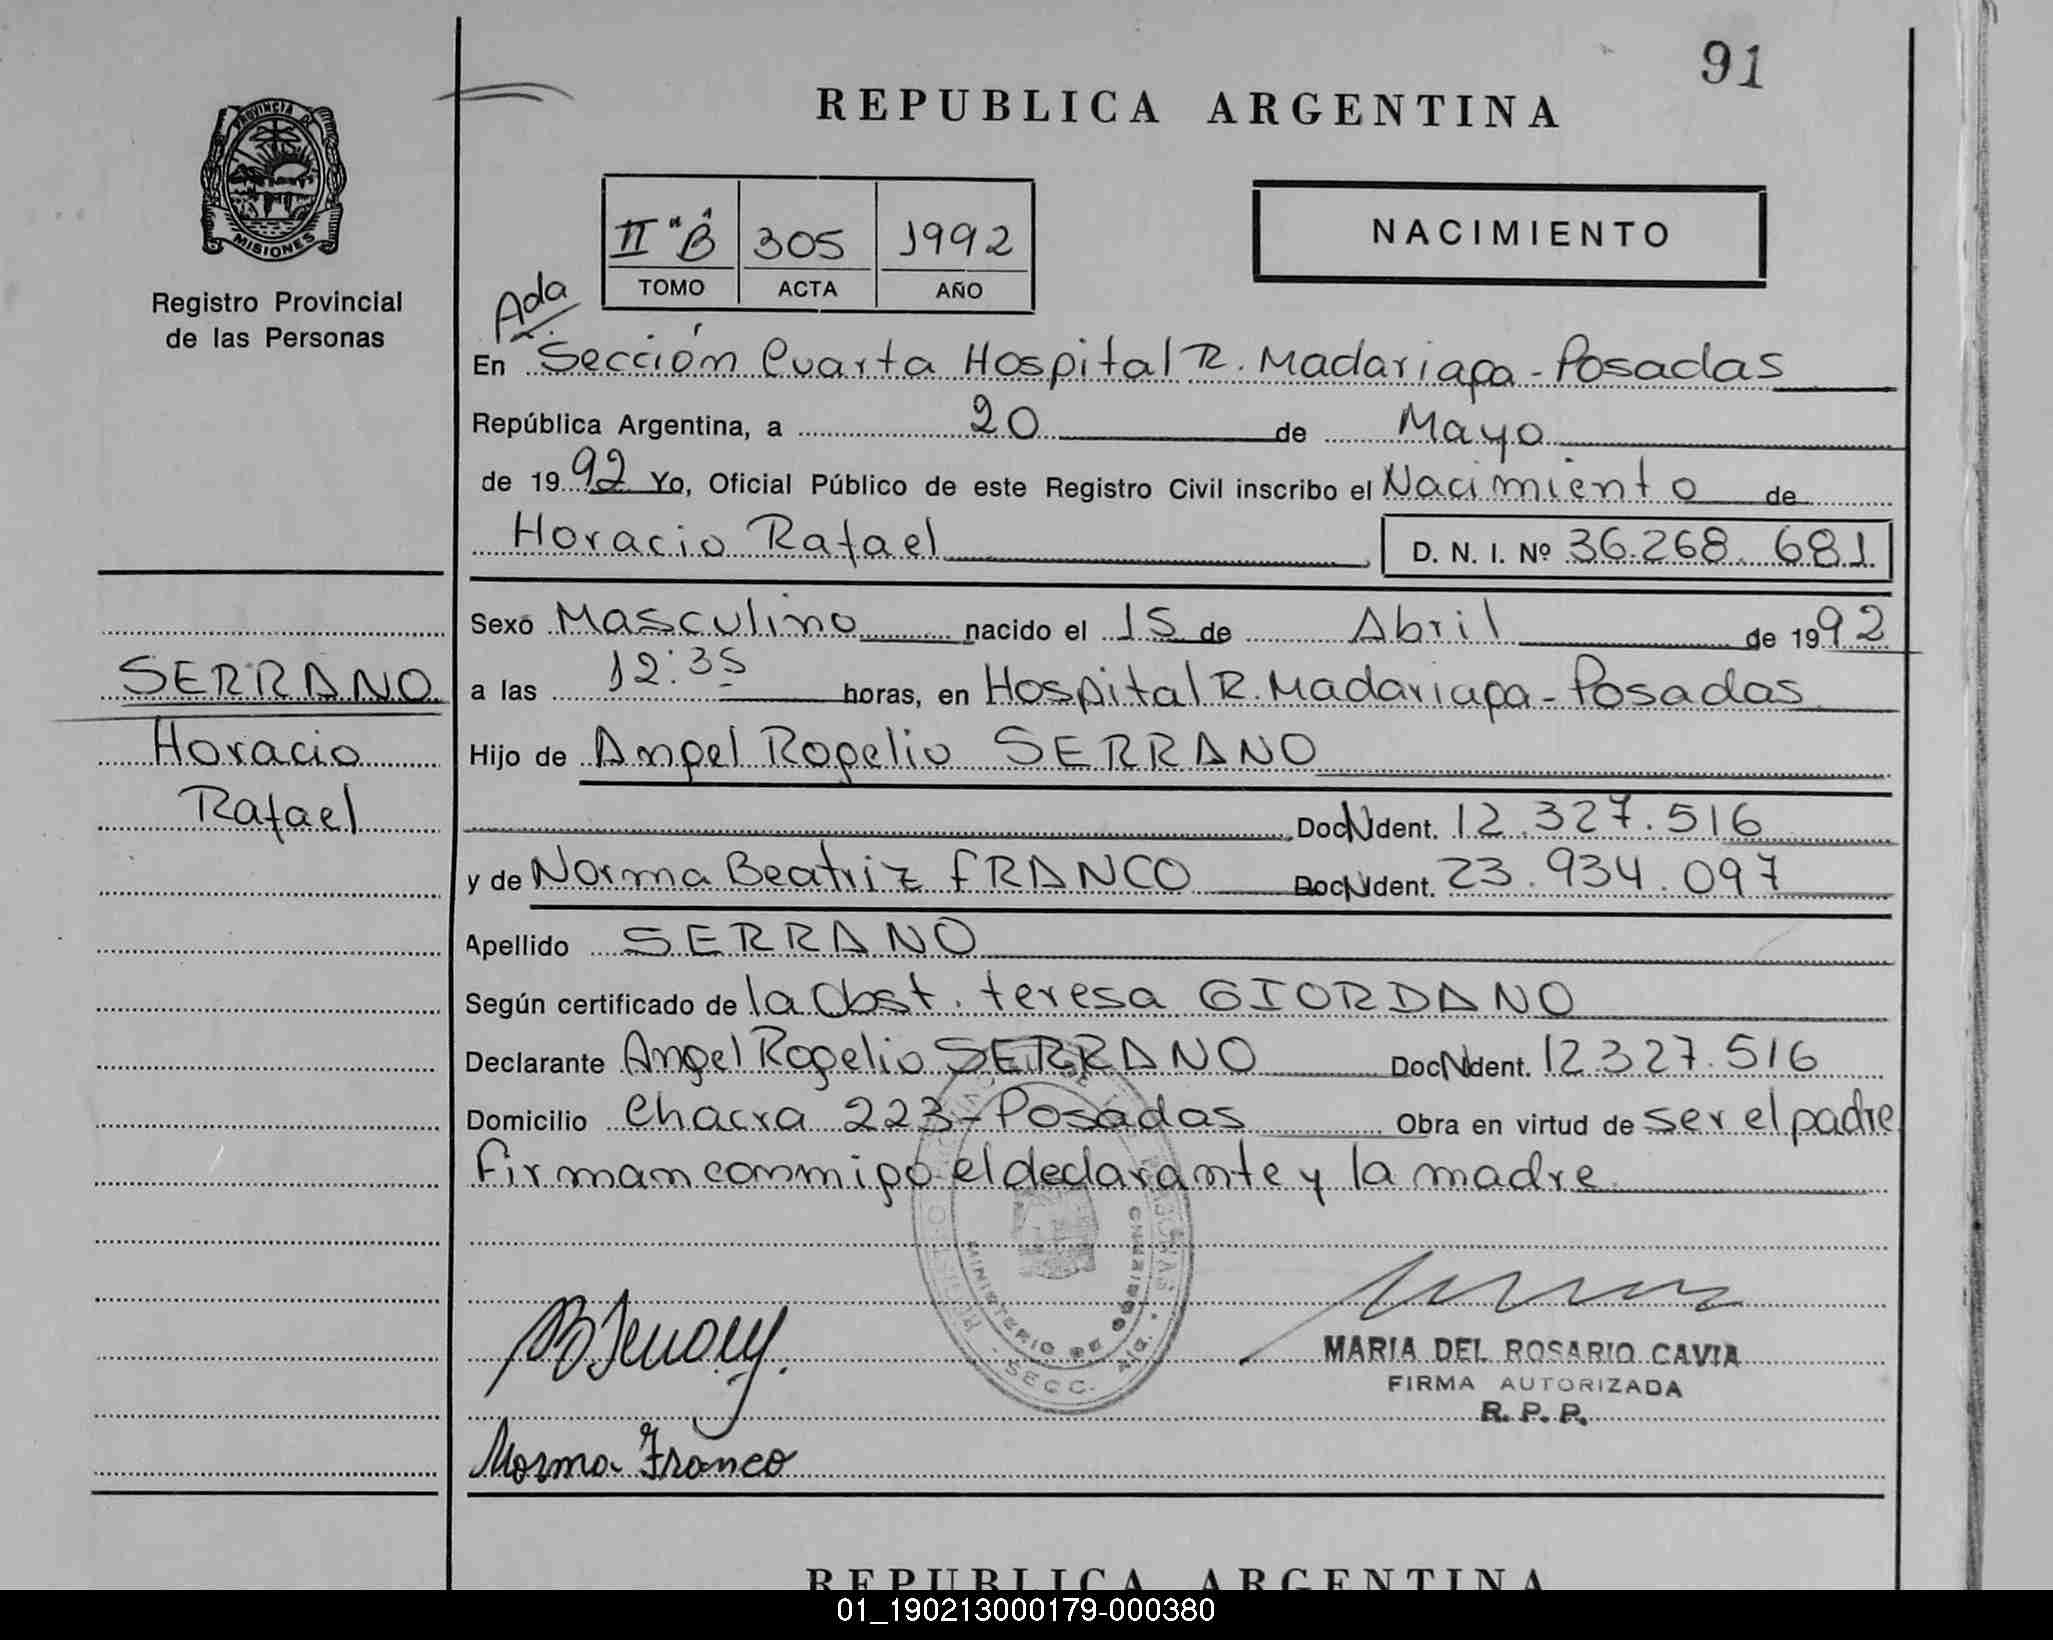 91
REPUBLICA ARGENTINA
PROVINCIA DE
MISIONES
Registro Provincial
de las Personas
II "B" 305 1992
TOMO ACTA AÑO
NACIMIENTO
Ada
En Sección Cuarta Hospital R. Madariaga - Posadas
República Argentina, a 20 de Mayo
de 1992 Yo, Oficial Público de este Registro Civil inscribo el Nacimiento de
Horacio Rafael D. N. I. Nº 36.268.681
Sexo Masculino nacido el 15 de Abril de 1992
SERRANO
Horacio
Rafael
a las 12:35 horas, en Hospital R. Madariaga - Posadas
Hijo de Angel Rogelio SERRANO
Doc. N Ident. 12.327.516
y de Norma Beatriz FRANCO Doc. N Ident. 23.934.097
Apellido SERRANO
Según certificado de la Obst. teresa GIORDANO
Declarante Angel Rogelio SERRANO Doc. N Ident. 12327.516
Domicilio Chacra 223 - Posadas Obra en virtud de ser el padre
Firman conmigo el declarante y la madre
MINISTERIO DE GOBIERNO
SECC. 4ta.
MARIA DEL ROSARIO CAVIA
FIRMA AUTORIZADA
R. P. P.
Norma Franco
REPUBLICA ARGENTINA
01_190213000179-000380